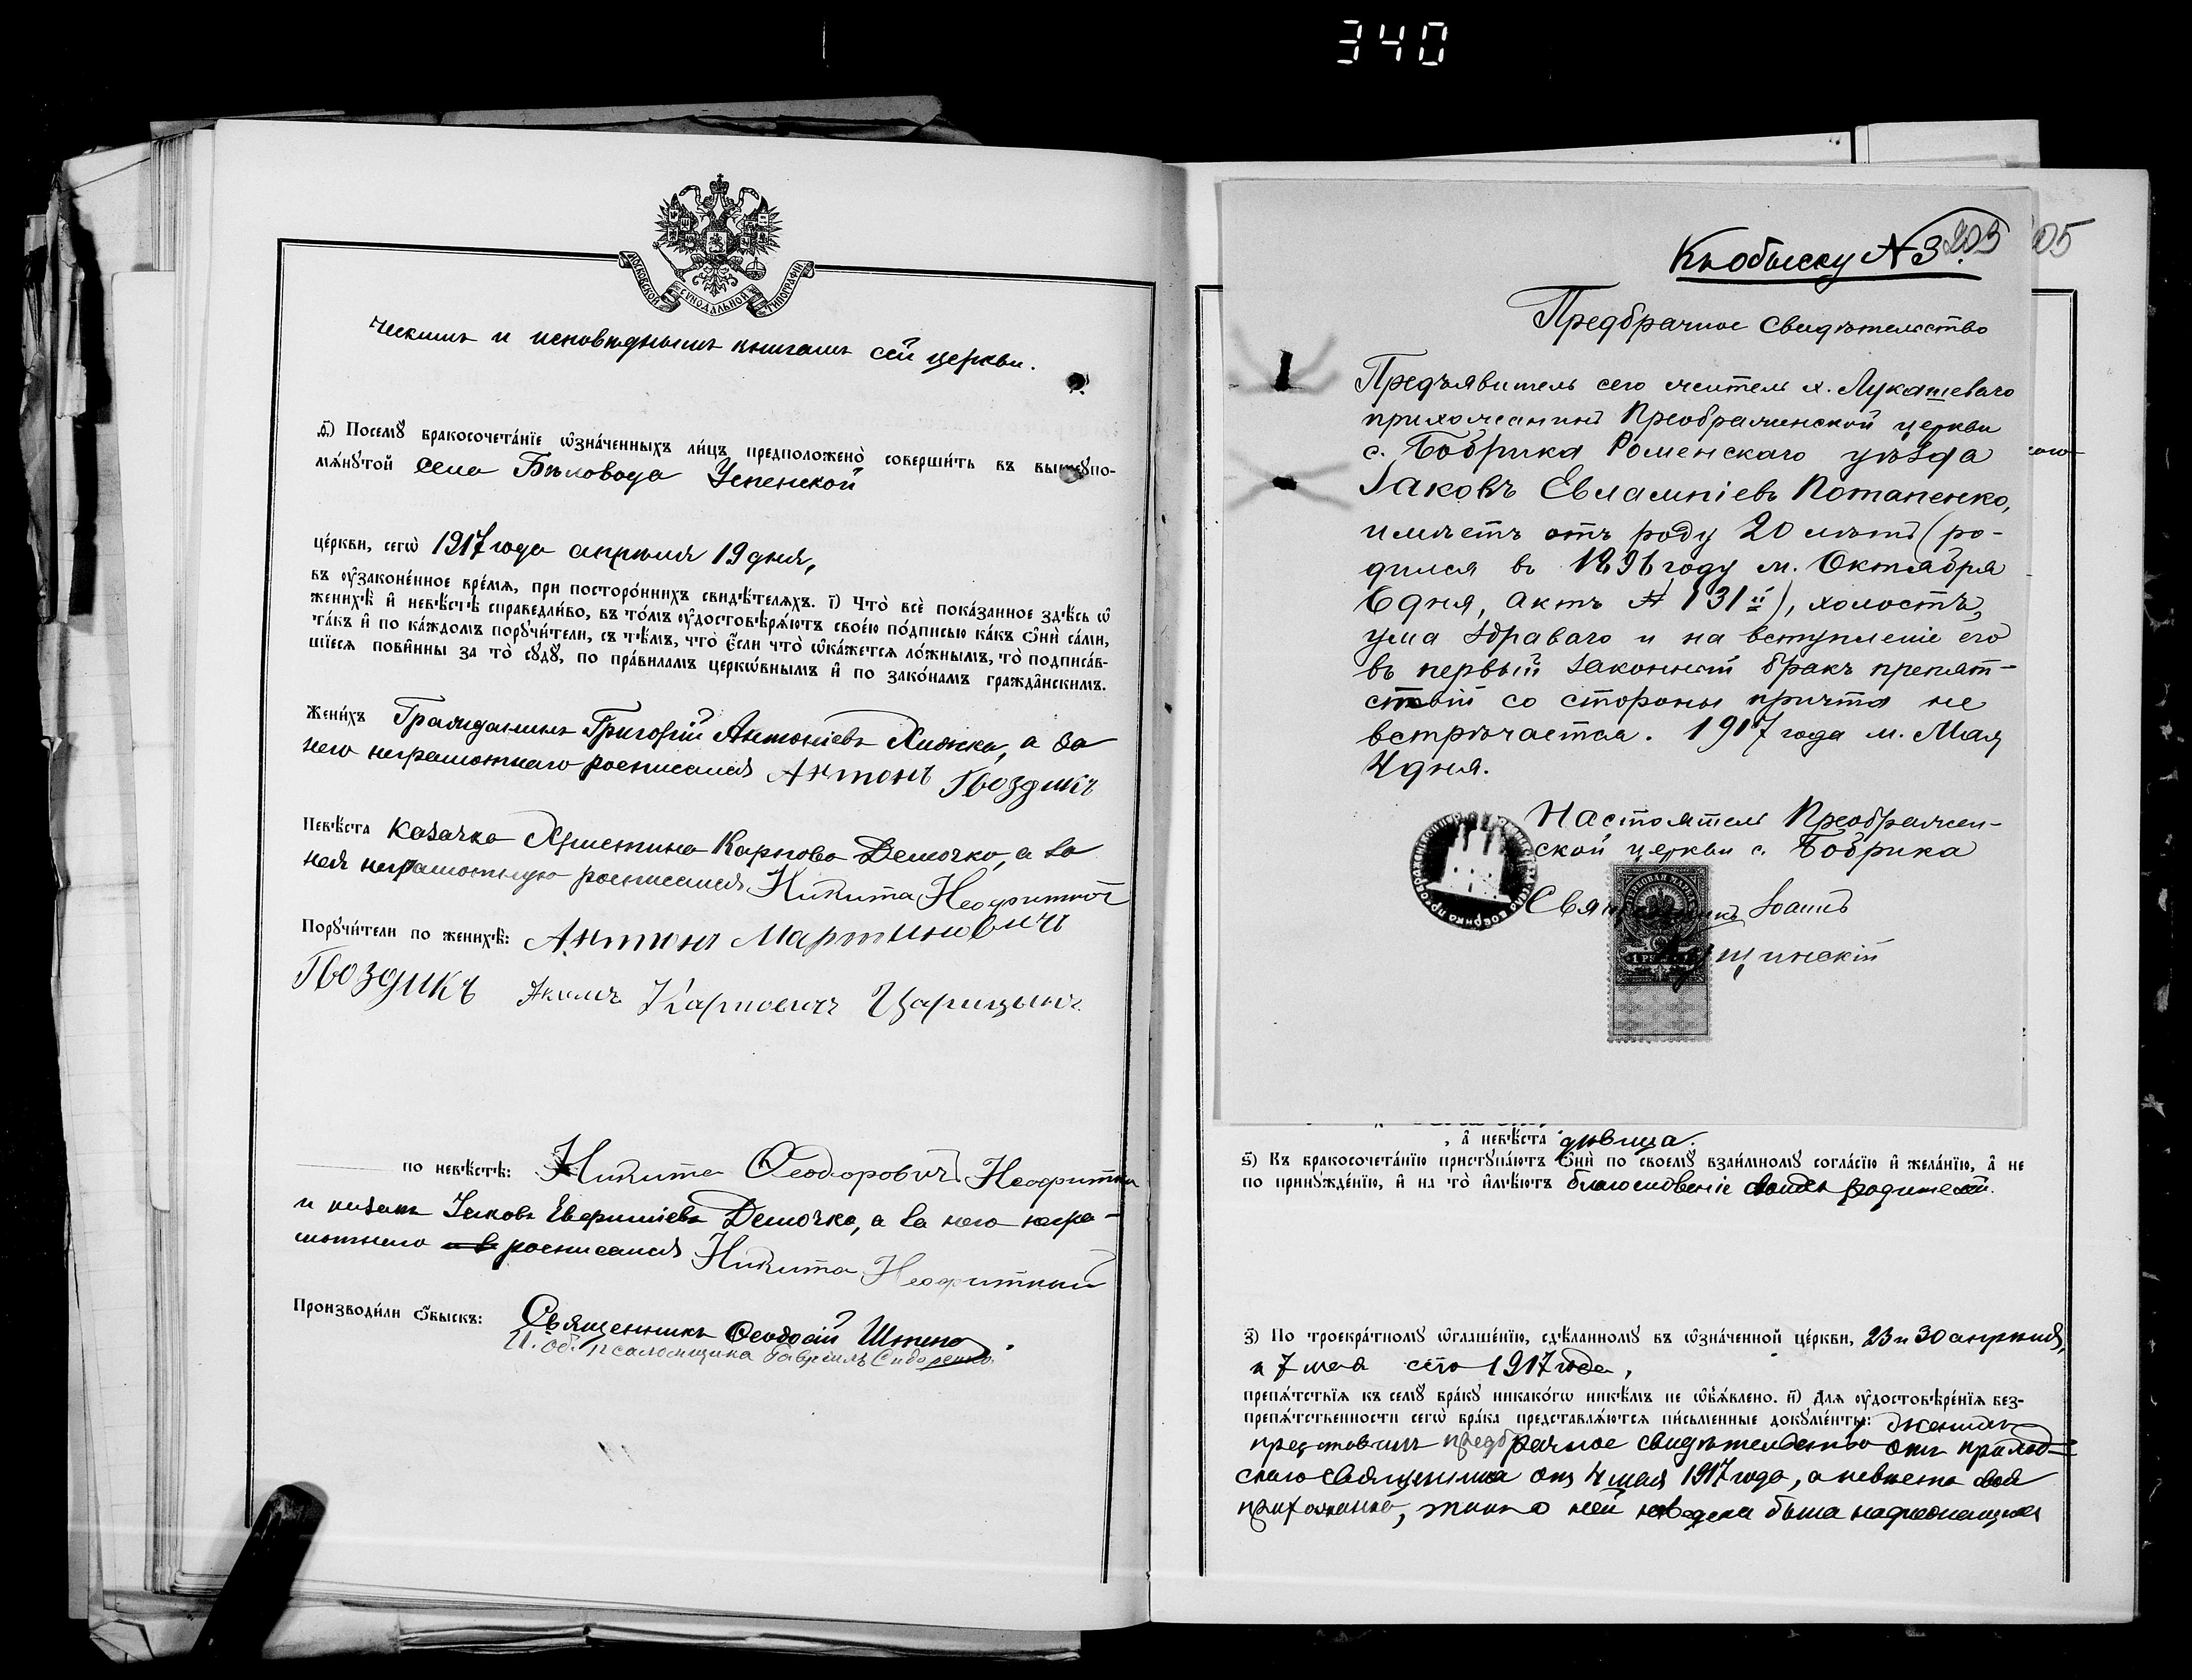 340
МОСКОВСКОЙ СѴНОДАЛЬНОЙ ТИПОГРАФІИ
ческимъ и исповѣднымъ книгамъ сей церкви.
д҃) Посемꙋ бракосочета́нїе ѡ҆зна́ченныхъ ли́цъ предположено̀ соверши́ть въ вышеупо-
мѧ́нꙋтой села Бѣловода Успенской
це́ркви, сегѡ̀ 1917 года апрѣля 19 дня,
въ ᲂу҆законе́нное вре́мѧ, при посторо́ннихъ свидѣ́телѧхъ. і҃) Что̀ всѐ пока́занное здѣ́сь ѡ҆
женихѣ̀ и҆ невѣ́стѣ справедли́во, въ то́мъ ᲂу҆достовѣрѧ́ютъ свое́ю по́дписью ка́къ ѻ҆нѝ са́ми,
та́къ и҆ по ка́ждомъ порꙋчи́тели, съ тѣ́мъ, что̀ є҆́сли что̀ ѡ҆ка́жетсѧ ло́жнымъ, то̀ подписа́в-
шїесѧ пови́нны за то̀ сꙋдꙋ̀, по пра́виламъ церкѡ́внымъ и҆ по зако́намъ гражда́нскимъ.
Жени́хъ Гражданинъ Григорій Антоніевъ Хижка, а за
него неграмотнаго росписался Антонъ Гвоздикъ
Невѣ́ста казачка Христина Карпова Демочко, а за
нея неграмотную росписался Никита Неофитній
Порꙋчи́тели по женихѣ̀: Антонъ Мартиновичъ
Гвоздикъ Акимъ Карповичъ Царицынъ
по невѣ́стѣ: Никита Ѳеодоровичъ Неофитній
и казакъ Іаковъ Евфиміевъ Демочко, а за него негра-
мотнаго росписался Никита Неофитний
Производи́ли ѻ҆́быскъ: Священникъ Ѳеодосій Шпено.
И. об. псаломщика Гавріилъ Сидоренко
Къ обыску № 3.
203
05
Предбрачное свидѣтельство
Предъявитель сего житель х. Лукашеваго
прихожанинъ Преображенской церкви
с. Бобрика Роменскаго уѣзда
Іаковъ Евлампіевъ Потапенко,
имѣетъ отъ роду 20 лѣтъ (ро-
дился въ 1896 году м. Октября
6 дня, актъ № 131й), холостъ,
ума здраваго и на вступленіе его
въ первый законный бракъ препят-
ствій со стороны причта не
встрѣчается. 1917 года м. Мая
4 дня.
Настоятель Преображен-
ской церкви с. Бобрика
Священникъ Іоаннъ
щинскій
ГЕРБОВАЯ МАРКА
, а҆ невѣ́ста дѣвица.
ѕ҃) Къ бракосочета́нїю пристꙋпа́ютъ ѻ҆нѝ по своемꙋ̀ взаи́мномꙋ согла́сїю и҆ жела́нїю, а҆ не
по принꙋжде́нїю, и҆ на то̀ и҆мѣ́ютъ благословеніе своихъ родителей.
з҃) По троекра́тномꙋ ѡ҆глаше́нїю, сдѣ́ланномꙋ въ ѡ҆зна́ченной це́ркви, 23 и 30 апрѣля,
и 7 мая сего 1917 года,
препѧ́тствїѧ къ семꙋ̀ бра́кꙋ никако́гѡ никѣ́мъ не ѡ҆б̾ѧ́влено. и҃) Длѧ ᲂу҆достовѣре́нїѧ без-
препѧ́тственности сегѡ̀ бра́ка представлѧ́ютсѧ пи́сьменные докꙋме́нты: женихъ
представилъ предбрачное свидѣтельство отъ приход-
скаго священника отъ 4 мая 1917 года, а невѣста своя
прихожанка,